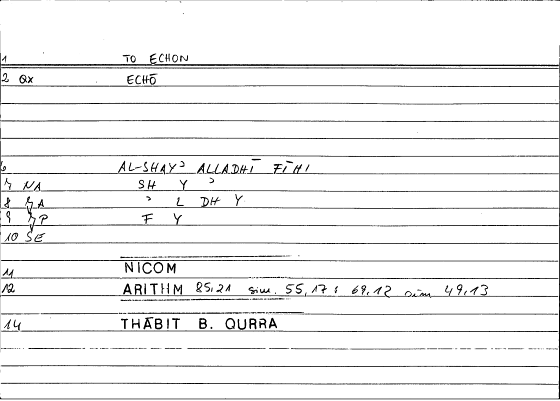 1 TO ECHON
2 QX ECHŌ
6 AL-SHAYʾ ALLADHĪ FĪHI
7 NA SH Y ʾ
8 ʾ L DH Y
9 F Y
10 SE
11 NICOM
12 ARITHM 85,21 sim. 55,17; 69,12 sim 49,13
14 THĀBIT B. QURRA